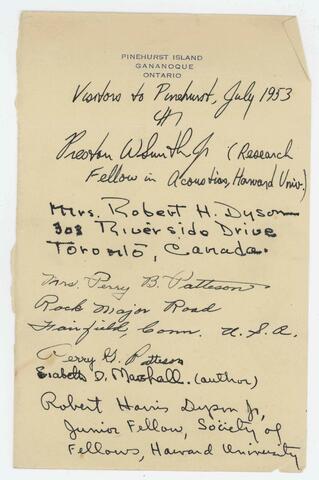 PINEHURST ISLAND
GANANOQUE
ONTARIO
Visitors to Pinehurst, July 1953
Preston W Smith Jr (Research
Fellow in Acoustics, Harvard Univ.)
Mrs. Robert H. Dyson
308 Riverside Drive
Toronto, Canada.
Mrs. Perry B. Patteson
Rock Major Road
Fairfield, Conn. U.S.A.
Perry G. Patteson
Elizabeth D. Marshall. (author)
Robert Harris Dyson Jr,
Junior Fellow, Society of
Fellows, Harvard University